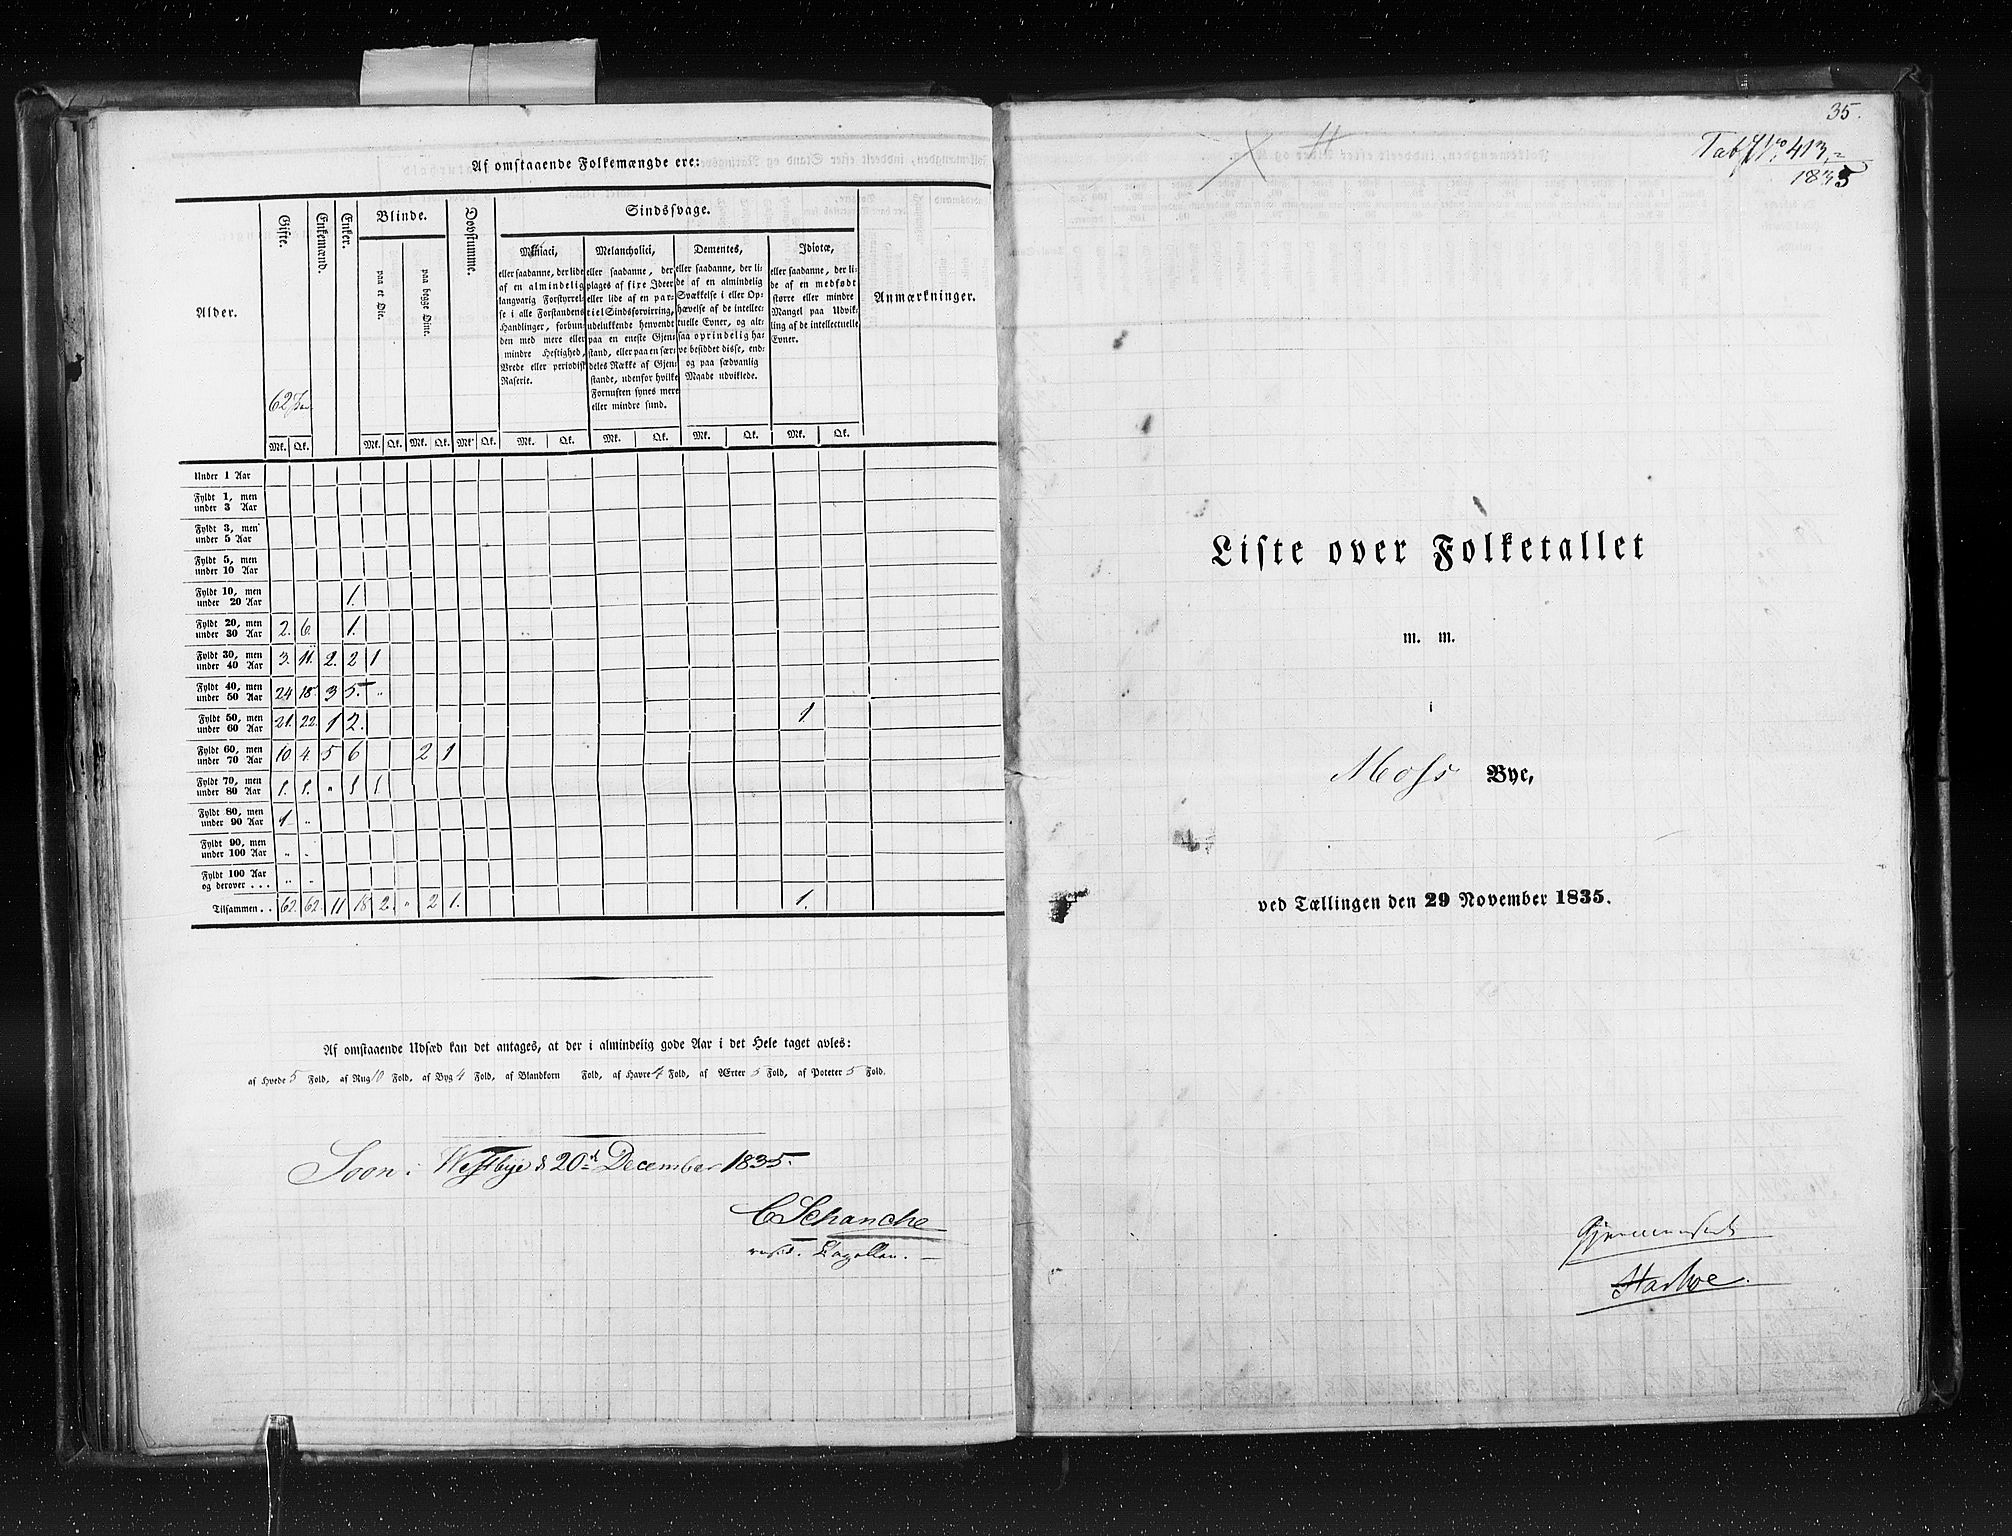 Af omstaaende Folkemængde ere:
Alder.
Gifte.
Enkemænd.
Enker.
Blinde.
paa et Øie.
paa begge Øine.
Døvstumme.
Sindssvage.
Maniaci,
eller saadanne, der lide
af en almindelig
langvarig Forstyrrel-
se i alle Forstandens
Handlinger, forbun-
den med mere eller
mindre Heftighed,
Vrede eller periodisk
Raserie.
Melancholici,
eller saadanne, der
plages af fixe Ideer
eller lide af en par-
tiel Sindsforvirring,
udelukkende henvendt
paa en eneste Gjen-
stand, eller paa en sær-
deles Række af Gjen-
stande, udenfor hvilke
Fornuften synes mere
eller mindre sund.
Dementes,
eller saadanne, der li-
de af en almindelig
Svækkelse i eller Op-
hævelse af de intellec-
tuelle Evner, og alt-
saa oprindelig ha-
ve besiddet disse, end-
og paa sædvanlig
Maade udviklede.
Idiotæ,
eller saadanne, der li-
de af en medfødt
større eller mindre
Mangel paa Udvik-
ling af de intellectuelle
Evner.
Anmærkninger.
62 Par.
Mk. Qk. Mk. Qk. Mk. Qk. Mk. Qk. Mk. Qk. Mk. Qk. Mk. Qk. Mk. Qk.
Under 1 Aar
Fyldt 1, men
under 3 Aar
Fyldt 3, men
under 5 Aar
Fyldt 5, men
under 10 Aar
Fyldt 10, men
under 20 Aar 1.
Fyldt 20, men
under 30 Aar 2. 6. 1.
Fyldt 30, men
under 40 Aar 3. 11. 2. 2 1
Fyldt 40, men
under 50 Aar 24 18 3 5. "
Fyldt 50, men
under 60 Aar 21. 22. 1 2. 1.
Fyldt 60, men
under 70 Aar 10 4 5 6 2 1
Fyldt 70, men
under 80 Aar 1. 1. " 1 1
Fyldt 80, men
under 90 Aar 1 "
Fyldt 90, men
under 100 Aar " "
Fyldt 100 Aar
og derover . . . " "
Tilsammen . . 62. 62. 11 18 2. " 2 1. 1.
Af omstaaende Udsæd kan det antages, at der i almindelig gode Aar i det Hele taget avles:
af Hvede 5 Fold, af Rug 10 Fold, af Byg 4 Fold, af Blandkorn Fold, af Havre 4 Fold, af Ærter 5 Fold, af Poteter 5 Fold.
Soon i Westbye d 20d December 1835.
C Schanche
resid. Capellan.
35.
Tab No 413
1835
Liste over Folketallet
m. m.
i
Moss Bye,
ved Tællingen den 29 November 1835.
Gjennemseet